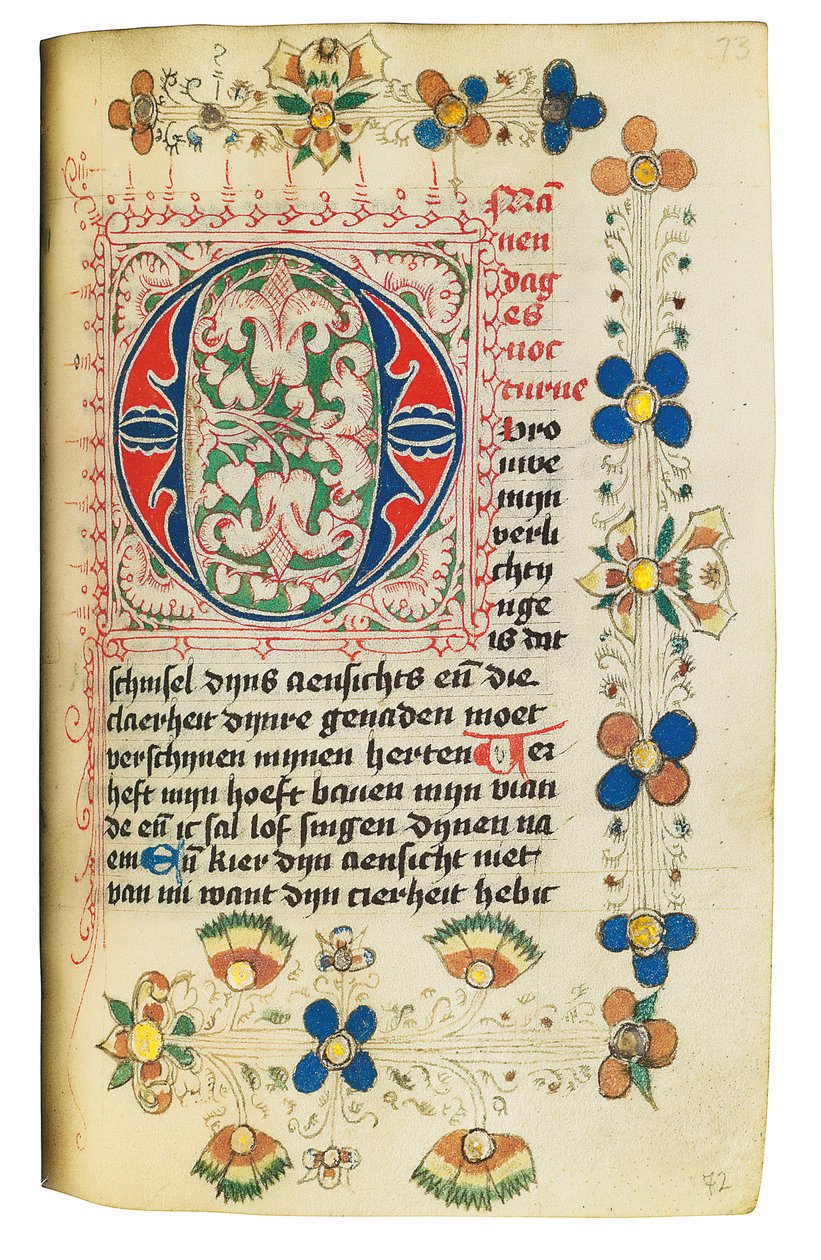 73
smaā
nen
dag
es
noc
turne
O vro
uwe
mijn
verli
chtij
nge
is dat
schinsel dijns aensichts en̄ die
claerheit dijnre genaden moet
verschijnen mijnen herten Ver
heft mijn hoeft bauen mijn vian
de en̄ ic sal lof singen dijnen na
em En̄ kier dijn aensicht niet
van mi want dijn cierheit hebic
72